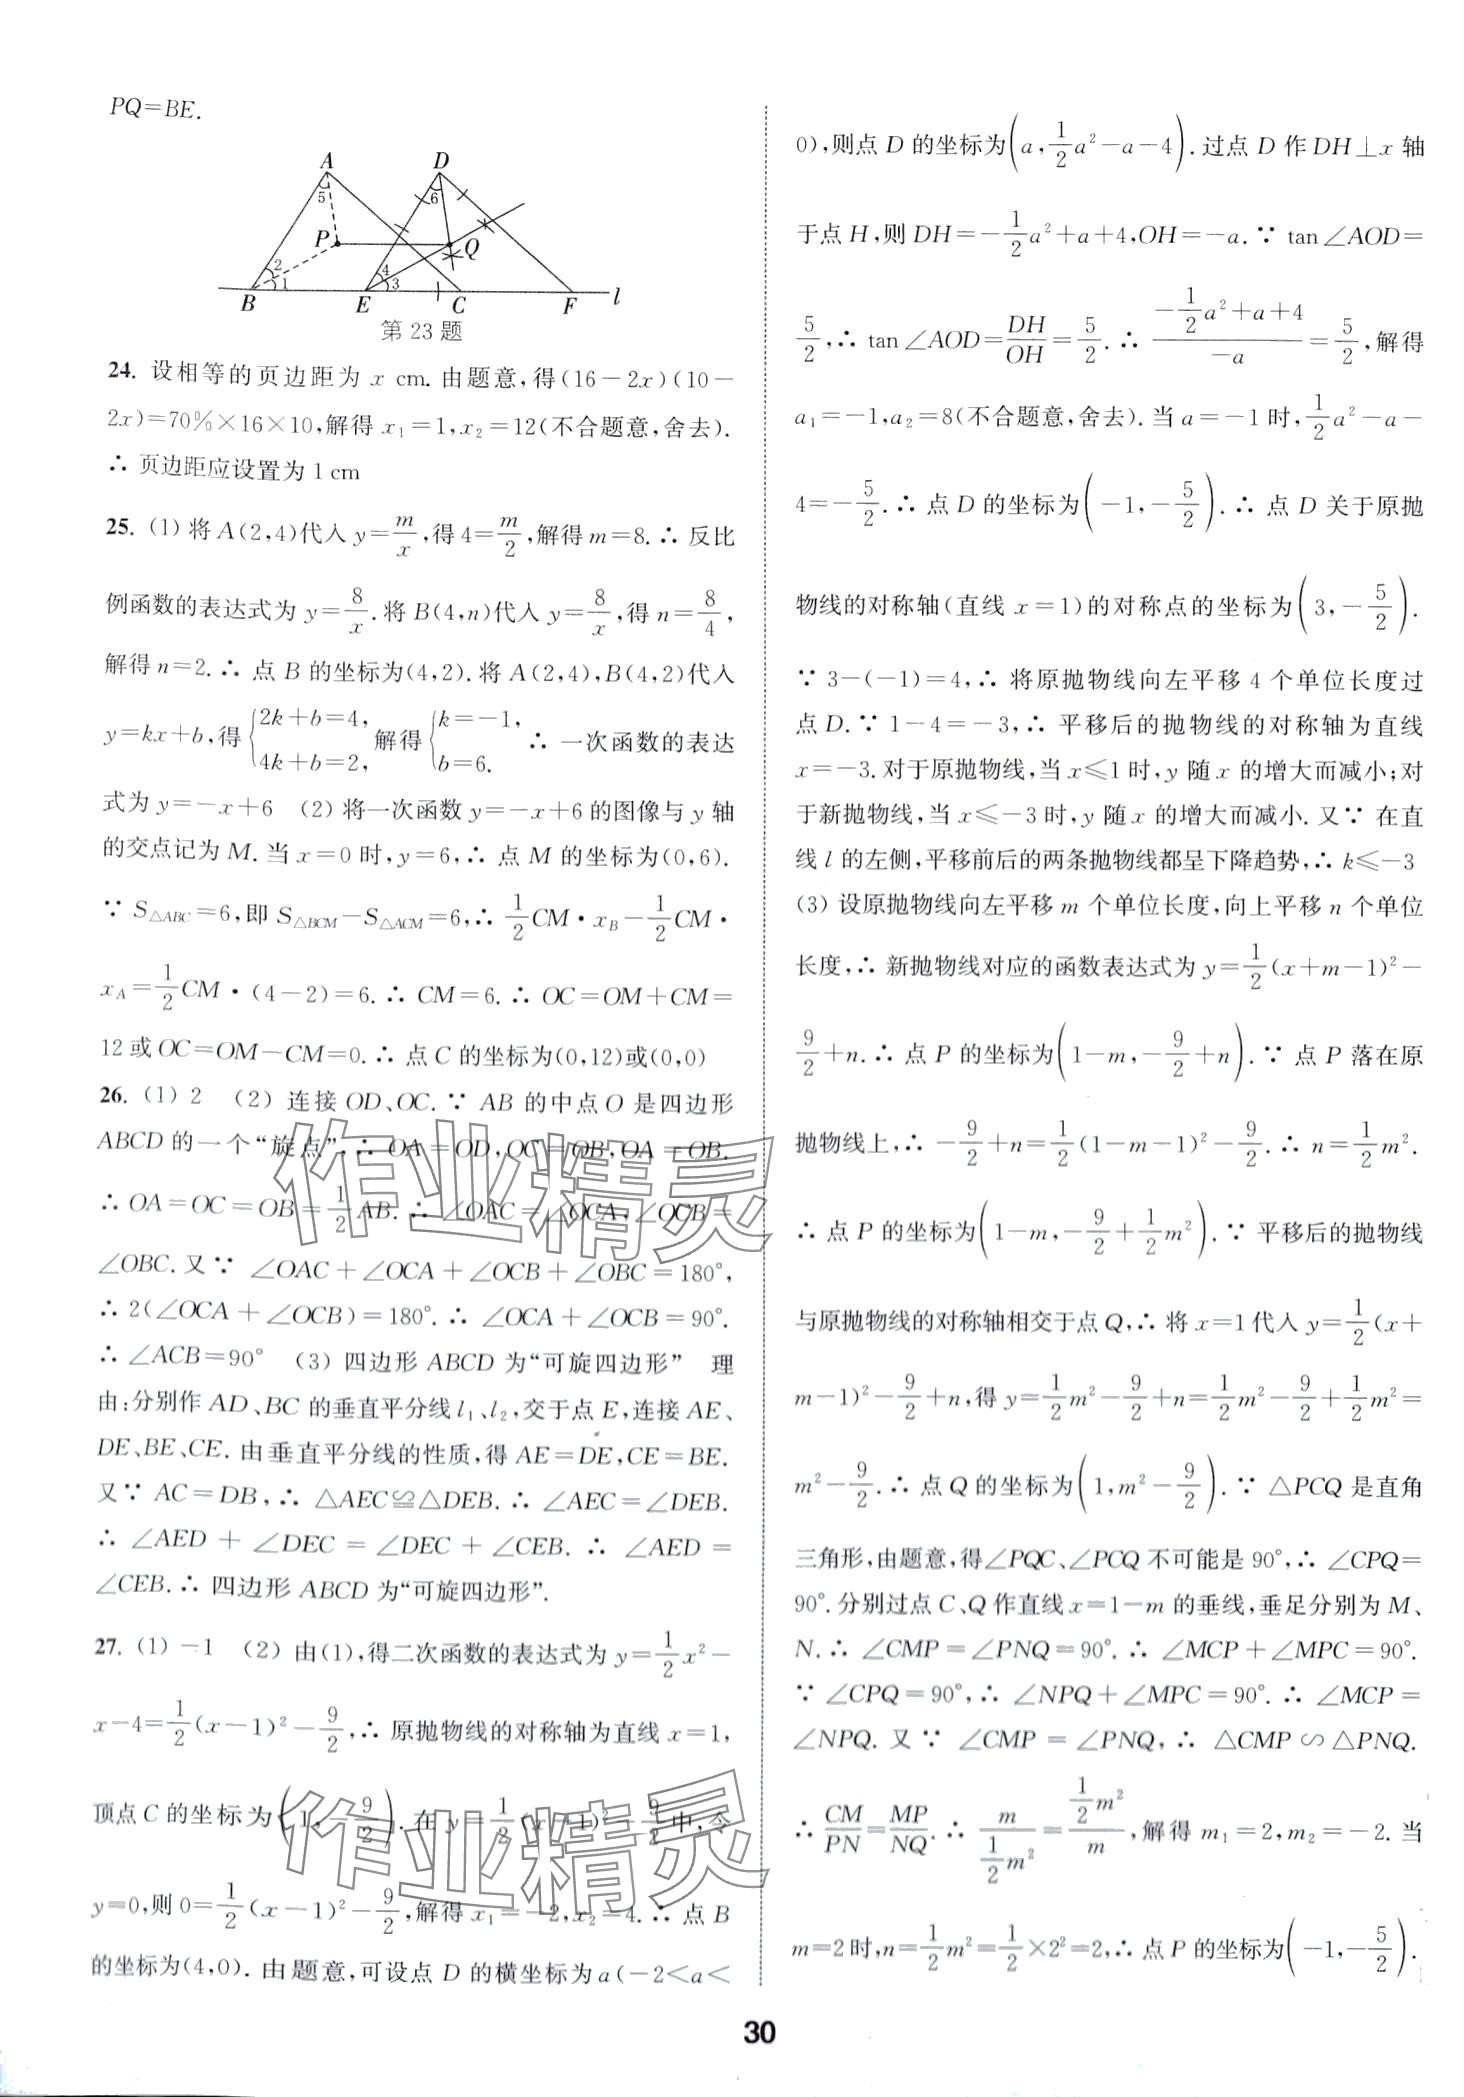 PQ=BE.
A D 5 6 P Q 2 1 4 3 B E C F l
第 23 题
24. 设相等的页边距为 x cm. 由题意,得(16-2x)(10-
2x)=70%×16×10,解得 x₁=1,x₂=12(不合题意,舍去).
∴ 页边距应设置为 1 cm
25. (1) 将 A(2,4)代入 y=m/x,得 4=m/2,解得 m=8. ∴ 反比
例函数的表达式为 y=8/x. 将 B(4,n)代入 y=8/x,得 n=8/4,
解得 n=2. ∴ 点 B 的坐标为(4,2). 将 A(2,4),B(4,2)代入
y=kx+b,得{2k+b=4, 4k+b=2, 解得{k=-1, b=6. ∴ 一次函数的表达
式为 y=-x+6 (2) 将一次函数 y=-x+6 的图像与 y 轴
的交点记为 M. 当 x=0 时,y=6,∴ 点 M 的坐标为(0,6).
∵ S△ABC=6,即 S△BCM-S△ACM=6,∴ 1/2CM·x_B-1/2CM·
x_A=1/2CM·(4-2)=6. ∴ CM=6. ∴ OC=OM+CM=
12 或 OC=OM-CM=0. ∴ 点 C 的坐标为(0,12)或(0,0)
26. (1) 2 (2) 连接 OD、OC. ∵ AB 的中点 O 是四边形
ABCD 的一个“旋点”,∴ OA=OD,OC=OB,OA=OB.
∴ OA=OC=OB=1/2AB. ∴ ∠OAC=∠OCA,∠OCB=
∠OBC. 又∵ ∠OAC+∠OCA+∠OCB+∠OBC=180°,
∴ 2(∠OCA+∠OCB)=180°. ∴ ∠OCA+∠OCB=90°.
∴ ∠ACB=90° (3) 四边形 ABCD 为“可旋四边形” 理
由:分别作 AD、BC 的垂直平分线 l₁、l₂,交于点 E,连接 AE、
DE、BE、CE. 由垂直平分线的性质,得 AE=DE,CE=BE.
又∵ AC=DB,∴ △AEC≌△DEB. ∴ ∠AEC=∠DEB.
∴ ∠AED+∠DEC=∠DEC+∠CEB. ∴ ∠AED=
∠CEB. ∴ 四边形 ABCD 为“可旋四边形”.
27. (1) -1 (2) 由(1),得二次函数的表达式为 y=1/2x²-
x-4=1/2(x-1)²-9/2,∴ 原抛物线的对称轴为直线 x=1,
顶点 C 的坐标为(1,-9/2). 在 y=1/2(x-1)²-9/2中,令
y=0,则 0=1/2(x-1)²-9/2,解得 x₁=-2,x₂=4. ∴ 点 B
的坐标为(4,0). 由题意,可设点 D 的横坐标为 a(-2<a<
0),则点 D 的坐标为(a,1/2a²-a-4). 过点 D 作 DH⊥x 轴
于点 H,则 DH=-1/2a²+a+4,OH=-a. ∵ tan∠AOD=
5/2,∴ tan∠AOD=DH/OH=5/2. ∴ (-1/2a²+a+4)/(-a)=5/2,解得
a₁=-1,a₂=8(不合题意,舍去). 当 a=-1 时,1/2a²-a-
4=-5/2. ∴ 点 D 的坐标为(-1,-5/2). ∴ 点 D 关于原抛
物线的对称轴(直线 x=1)的对称点的坐标为(3,-5/2).
∵ 3-(-1)=4,∴ 将原抛物线向左平移 4 个单位长度过
点 D. ∵ 1-4=-3,∴ 平移后的抛物线的对称轴为直线
x=-3. 对于原抛物线,当 x≤1 时,y 随 x 的增大而减小;对
于新抛物线,当 x≤-3 时,y 随 x 的增大而减小. 又∵ 在直
线 l 的左侧,平移前后的两条抛物线都呈下降趋势,∴ k≤-3
(3) 设原抛物线向左平移 m 个单位长度,向上平移 n 个单位
长度,∴ 新抛物线对应的函数表达式为 y=1/2(x+m-1)²-
9/2+n. ∴ 点 P 的坐标为(1-m,-9/2+n). ∵ 点 P 落在原
抛物线上,∴ -9/2+n=1/2(1-m-1)²-9/2. ∴ n=1/2m².
∴ 点 P 的坐标为(1-m,-9/2+1/2m²). ∵ 平移后的抛物线
与原抛物线的对称轴相交于点 Q,∴ 将 x=1 代入 y=1/2(x+
m-1)²-9/2+n,得 y=1/2m²-9/2+n=1/2m²-9/2+1/2m²=
m²-9/2. ∴ 点 Q 的坐标为(1,m²-9/2). ∵ △PCQ 是直角
三角形,由题意,得∠PQC、∠PCQ 不可能是 90°,∴ ∠CPQ=
90°. 分别过点 C、Q 作直线 x=1-m 的垂线,垂足分别为 M、
N. ∴ ∠CMP=∠PNQ=90°. ∴ ∠MCP+∠MPC=90°.
∵ ∠CPQ=90°,∴ ∠NPQ+∠MPC=90°. ∴ ∠MCP=
∠NPQ. 又∵ ∠CMP=∠PNQ,∴ △CMP∽△PNQ.
∴ CM/PN=MP/NQ. ∴ m/(1/2m²)=(1/2m²)/m,解得 m₁=2,m₂=-2. 当
m=2 时,n=1/2m²=1/2×2²=2,∴ 点 P 的坐标为(-1,-5/2).
作业精灵
作业精灵
30